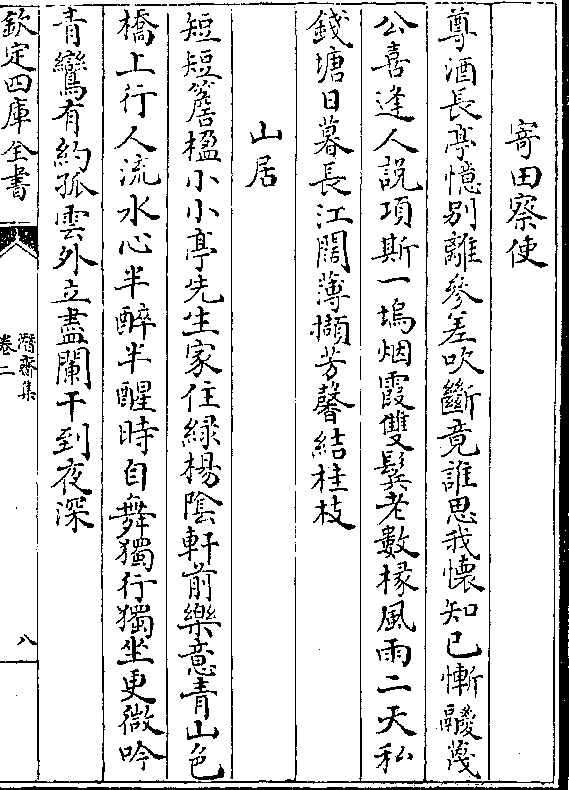 寄田察使
尊酒長亭憶别離參差吹斷竟誰思我懐知已慚鬷蔑
公喜逢人説項斯一塢烟霞雙鬓老數椽風雨二天私
錢塘日暮長江闊薄擷芳馨結桂枝
山居
短短簷楹小小亭先生家住緑楊陰軒前樂意青山色
橋上行人流水心半醉半醒時自舞獨行獨坐更微吟
青鸞有約孤雲外立盡闌干到夜深
欽定四庫全書
潛齋集
卷二
八